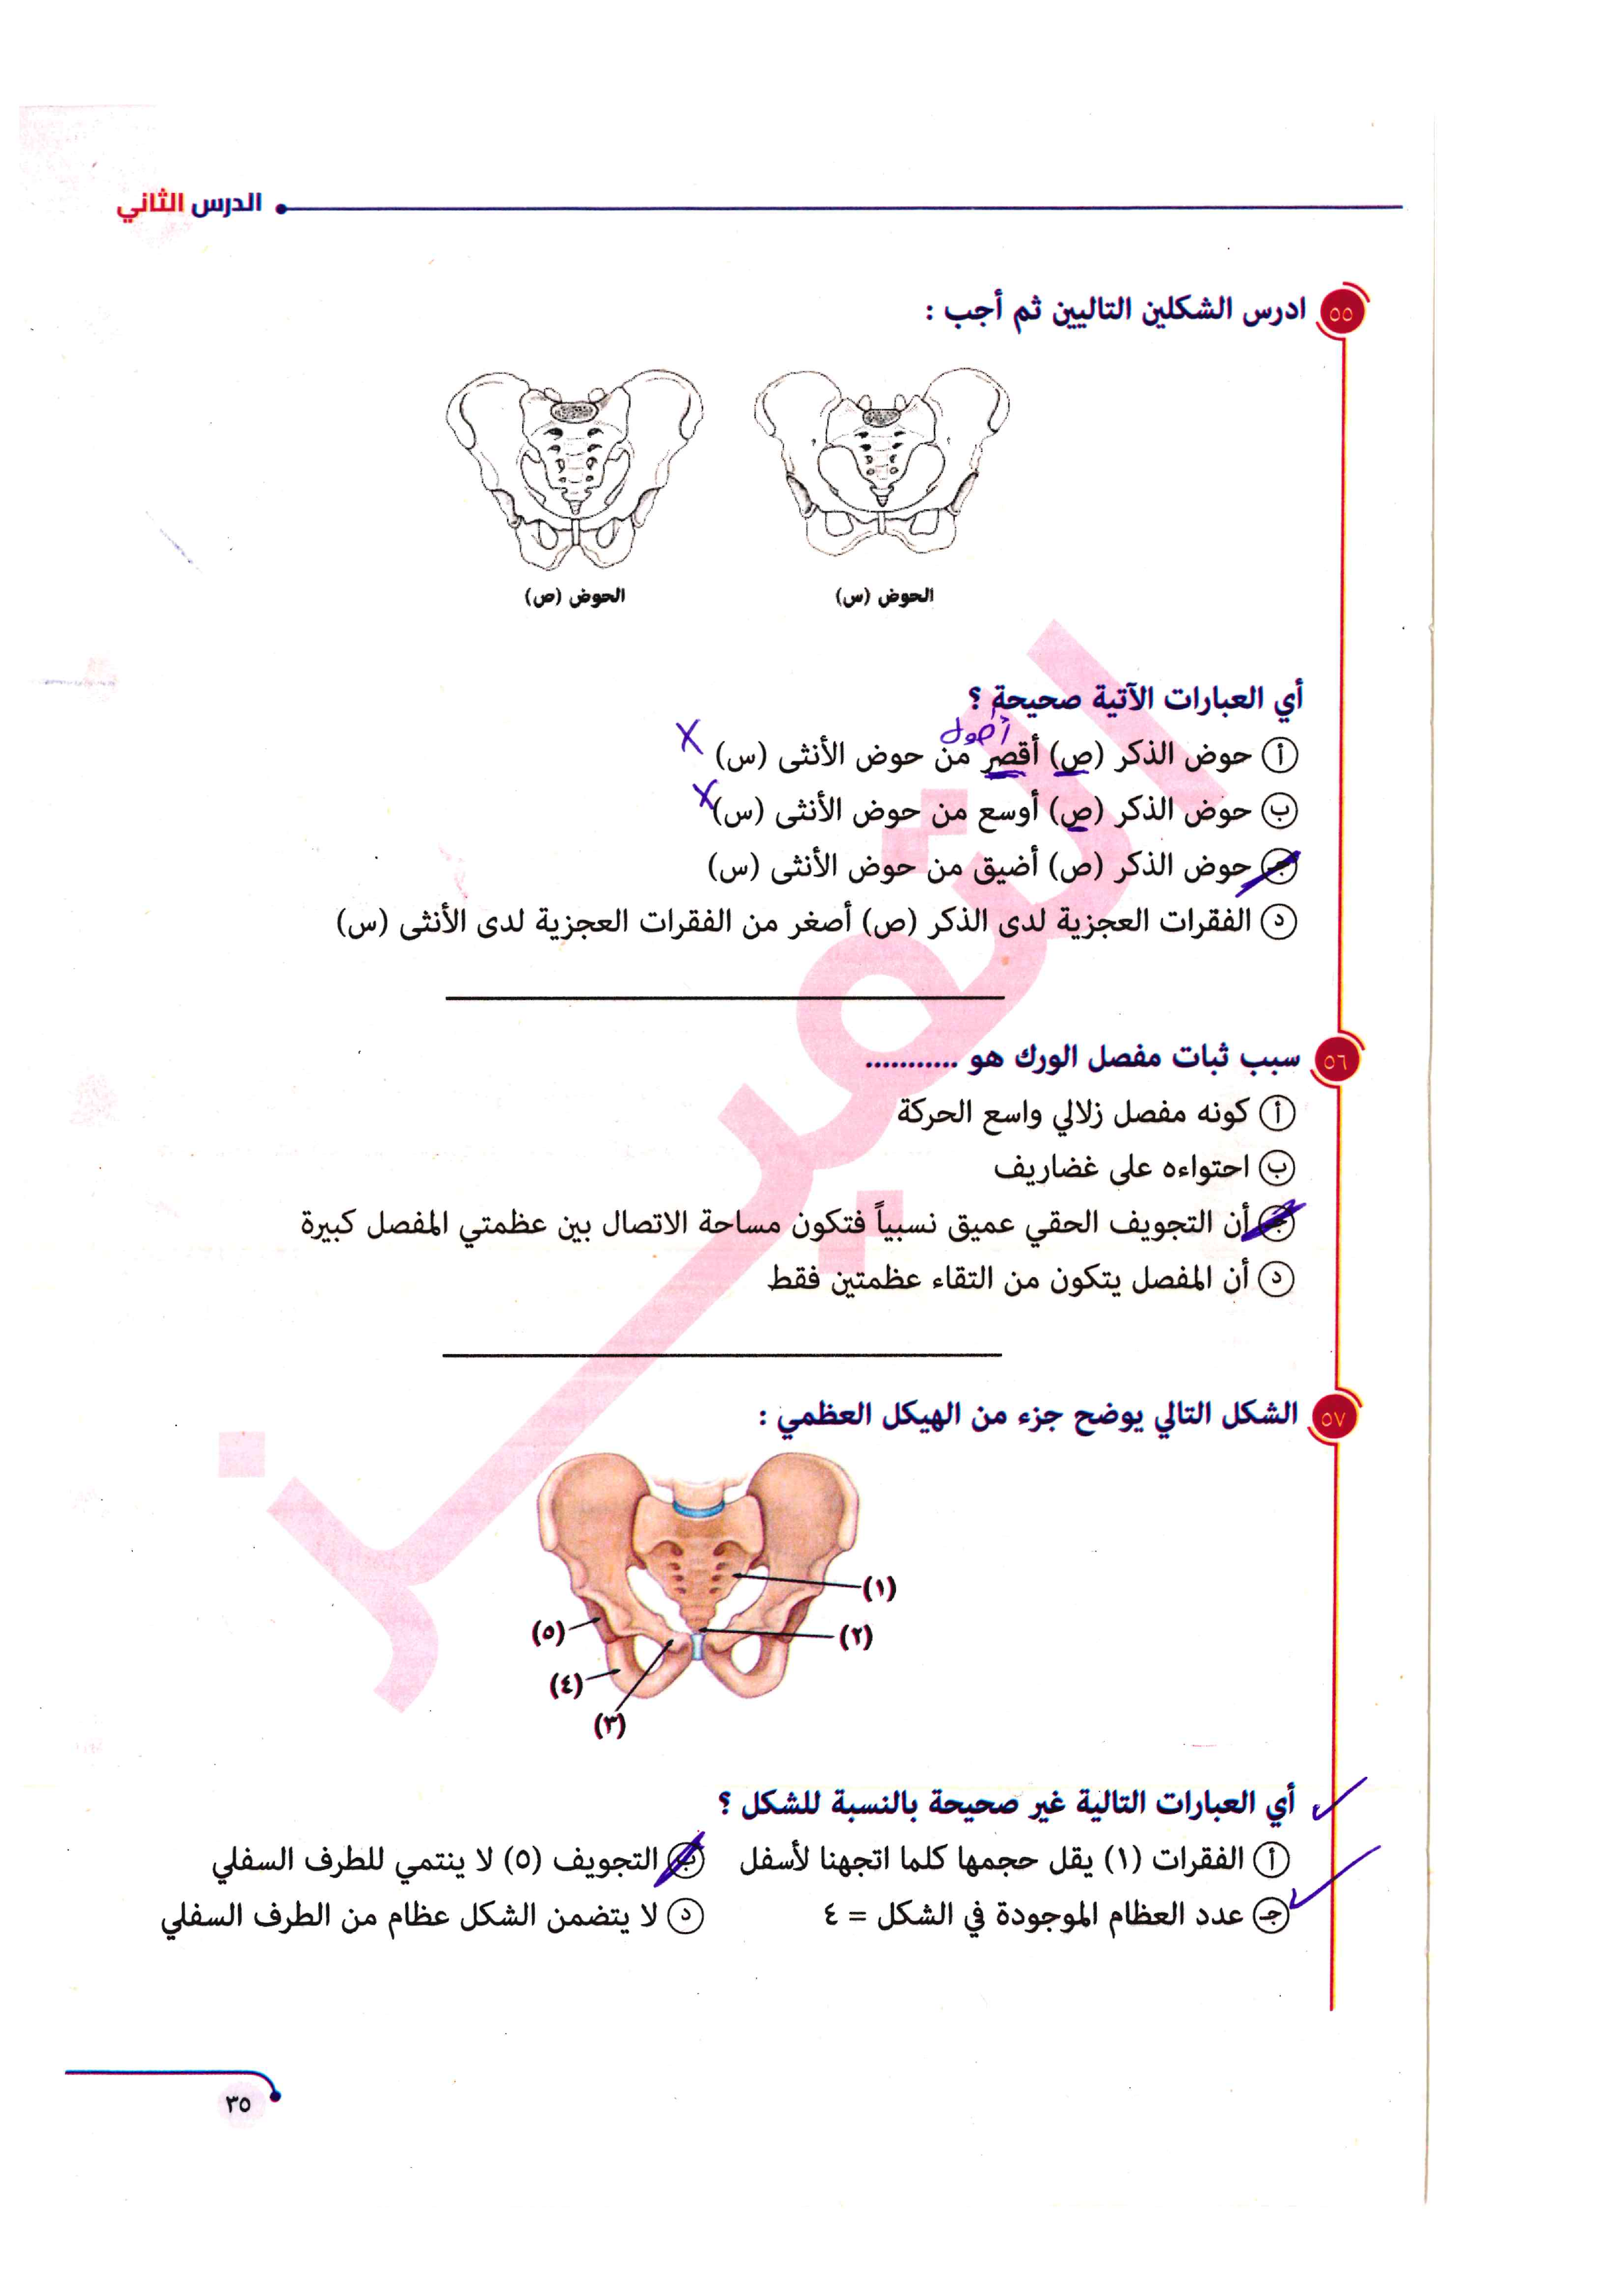 الدرس الثاني
٥٥ ادرس الشكلين التاليين ثم أجب :
الحوض (س)
الحوض (ص)
أي العبارات الآتية صحيحة ؟
أطول
أ حوض الذكر (ص) أقصر من حوض الأنثى (س) X
ب حوض الذكر (ص) أوسع من حوض الأنثى (س) X
جـ حوض الذكر (ص) أضيق من حوض الأنثى (س)
د الفقرات العجزية لدى الذكر (ص) أصغر من الفقرات العجزية لدى الأنثى (س)
٥٦ سبب ثبات مفصل الورك هو ...........
أ كونه مفصل زلالي واسع الحركة
ب احتواءه على غضاريف
جـ أن التجويف الحقي عميق نسبياً فتكون مساحة الاتصال بين عظمتي المفصل كبيرة
د أن المفصل يتكون من التقاء عظمتين فقط
٥٧ الشكل التالي يوضح جزء من الهيكل العظمي :
(١)
(٢)
(٥)
(٤)
(٣)
أي العبارات التالية غير صحيحة بالنسبة للشكل ؟
أ الفقرات (١) يقل حجمها كلما اتجهنا لأسفل
ب التجويف (٥) لا ينتمي للطرف السفلي
جـ عدد العظام الموجودة في الشكل = ٤
د لا يتضمن الشكل عظام من الطرف السفلي
٣٥